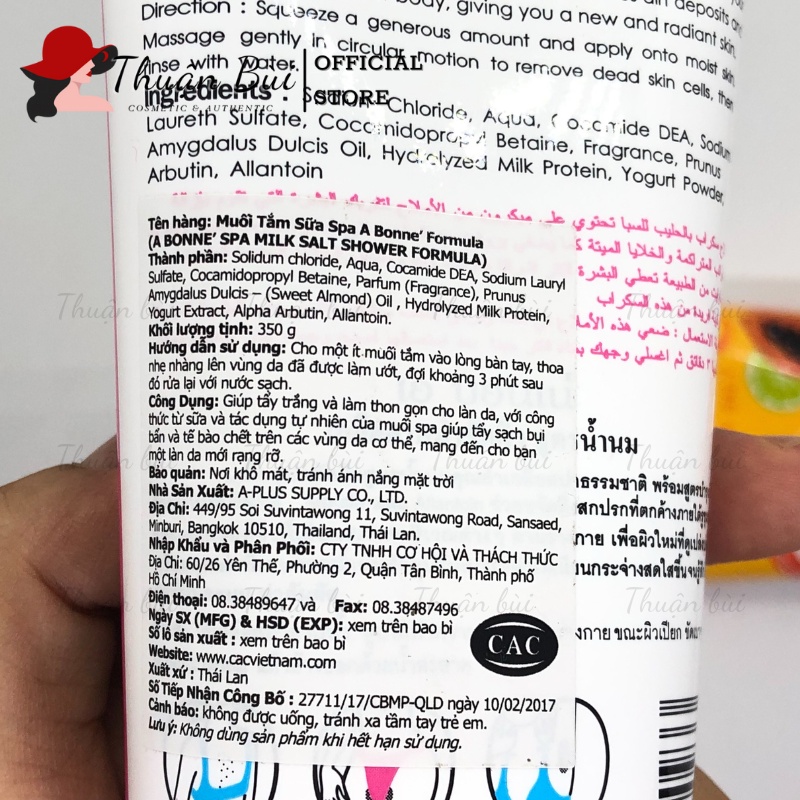 body, giving you a new and radiant skin
Direction : Squeeze a generous amount and apply onto moist skin
Massage gently in circular motion to remove dead skin cells, then
rinse with water.
Ingredients : Sodium Chloride, Aqua, Cocamide DEA, Sodium
Laureth Sulfate, Cocamidopropyl Betaine, Fragrance, Prunus
Amygdalus Dulcis Oil, Hydrolyzed Milk Protein, Yogurt Powder,
Arbutin, Allantoin
Thuận Bùi
COSMETIC & AUTHENTIC
OFFICIAL
STORE
Tên hàng: Muối Tắm Sữa Spa A Bonne' Formula
(A BONNE' SPA MILK SALT SHOWER FORMULA)
Thành phần: Solidum chloride, Aqua, Cocamide DEA, Sodium Lauryl
Sulfate, Cocamidopropyl Betaine, Parfum (Fragrance), Prunus
Amygdalus Dulcis – (Sweet Almond) Oil , Hydrolyzed Milk Protein,
Yogurt Extract, Alpha Arbutin, Allantoin.
Khối lượng tịnh: 350 g
Hướng dẫn sử dụng: Cho một ít muối tắm vào lòng bàn tay, thoa
nhẹ nhàng lên vùng da đã được làm ướt, đợi khoảng 3 phút sau
đó rửa lại với nước sạch.
Công Dụng: Giúp tẩy trắng và làm thon gọn cho làn da, với công
thức từ sữa và tác dụng tự nhiên của muối spa giúp tẩy sạch bụi
bẩn và tế bào chết trên các vùng da cơ thể, mang đến cho bạn
một làn da mới rạng rỡ.
Bảo quản: Nơi khô mát, tránh ánh nắng mặt trời
Nhà Sản Xuất: A-PLUS SUPPLY CO., LTD.
Địa Chỉ: 449/95 Soi Suvintawong 11, Suvintawong Road, Sansaed,
Minburi, Bangkok 10510, Thailand, Thái Lan.
Nhập Khẩu và Phân Phối: CTY TNHH CƠ HỘI VÀ THÁCH THỨC
Địa Chỉ: 60/26 Yên Thế, Phường 2, Quận Tân Bình, Thành phố
Hồ Chí Minh
Điện thoại: 08.38489647 và Fax: 08.38487496
Ngày SX (MFG) & HSD (EXP): xem trên bao bì
Số lô sản xuất : xem trên bao bì
Website: www.cacvietnam.com
Xuất xứ : Thái Lan
Số Tiếp Nhận Công Bố : 27711/17/CBMP-QLD ngày 10/02/2017
Cảnh báo: không được uống, tránh xa tầm tay trẻ em.
Lưu ý: Không dùng sản phẩm khi hết hạn sử dụng.
CAC
Thuận bùi
Thuận bùi
Thuận bùi